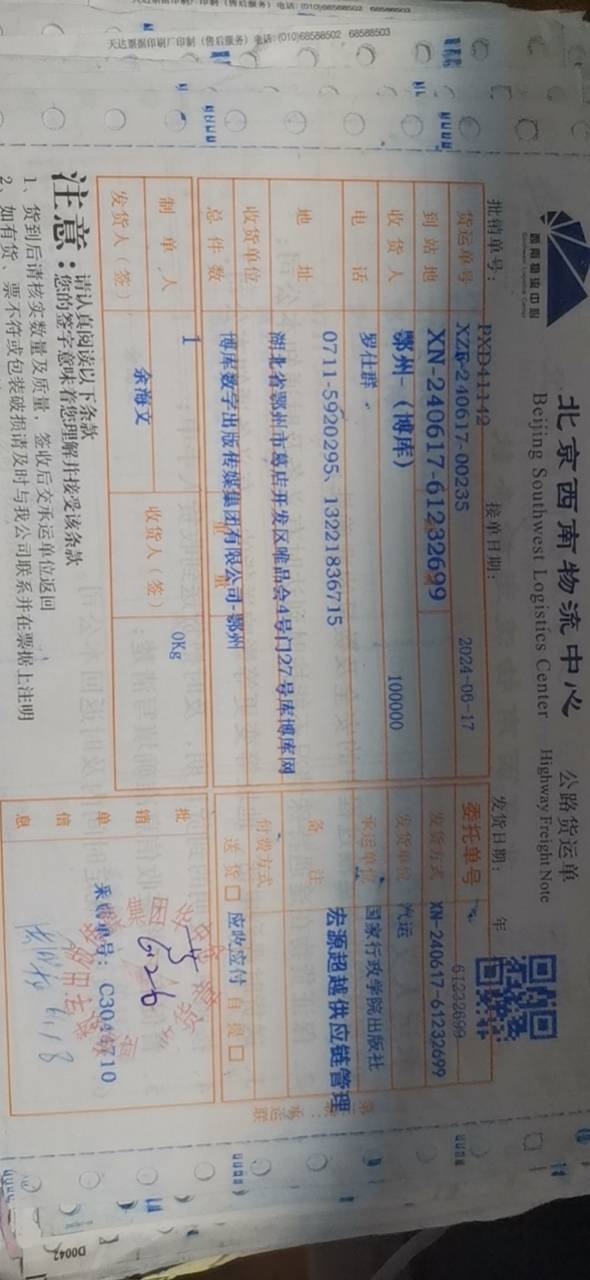 天达票据印刷厂印制（售后服务）电话:(010)68588502 68588503
西南物流中心
Southwest Logistics Center
北京西南物流中心 公路货运单
Beijing Southwest Logistics Center Highway Freight Note
批销单号： PXD41142 接单日期： 发货日期： 年
货运单号 XZF-240617-00235 2024-06-17 委托单号 61232699
到站地 XN-240617-61232699 发货方式 XN-240617-61232699
收货人 鄂州-（博库） 100000 发货单位 汽运
电话 罗仕群 承运单位 国家行政学院出版社
地址 0711-5920295、13221836715 备注 宏源超越供应链管理
湖北省鄂州市葛店开发区唯品会4号门27号库博库网
收货单位 博库数字出版传媒集团有限公司-鄂州 付费方式
总件数 1 0Kg 送货□ 应收应付 自提□
制单人 余海文 收货人（签） 批销单信息
发货人（签） 采购单号：
6.26
6/18
注意：
请认真阅读以下条款
您的签字意味着您理解并接受该条款
1、货到后请核实数量及质量，签收后交承运单位返回
2、如有货、票不符或包装破损请及时与我公司联系并在票据上注明
D0042